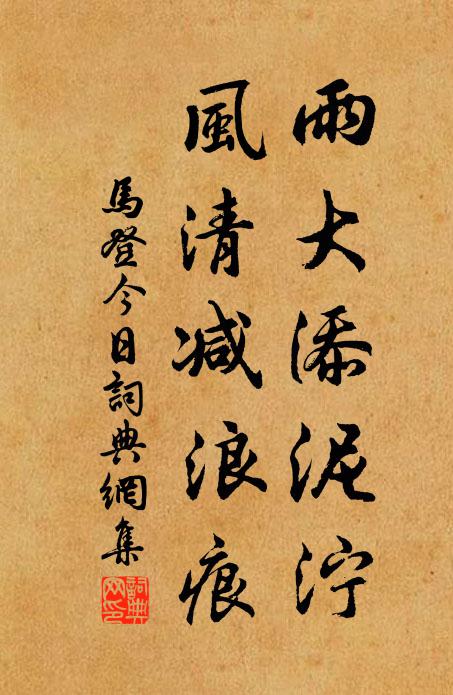 雨大添泥泞
風清减浪痕
馬登今日詞典網集
詞典網印